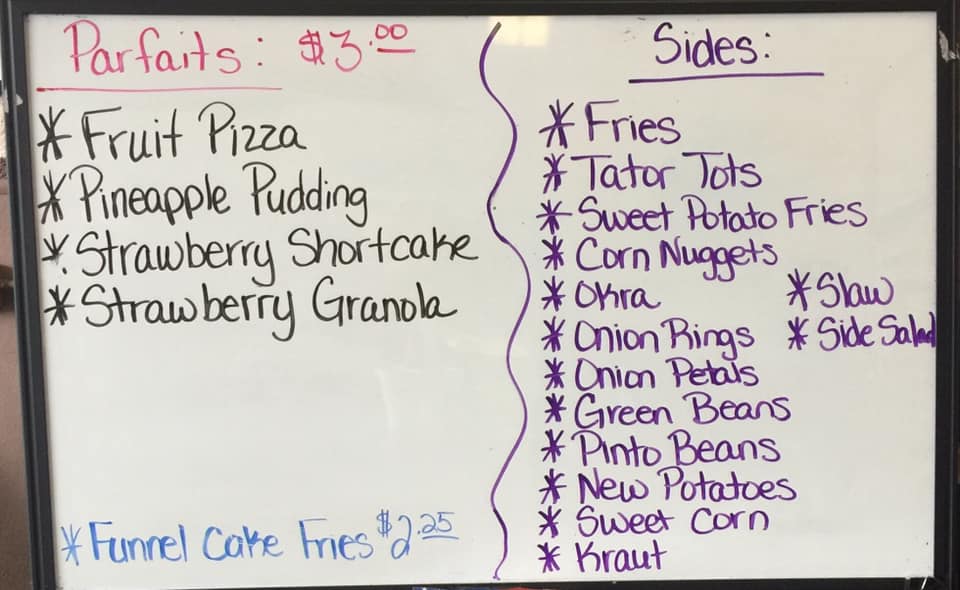 Parfaits: $3.00
* Fruit Pizza
* Pineapple Pudding
* Strawberry Shortcake
* Strawberry Granola
* Funnel Cake Fries $2.25
Sides:
* Fries
* Tator Tots
* Sweet Potato Fries
* Corn Nuggets
* Okra
* Onion Rings
* Onion Petals
* Green Beans
* Pinto Beans
* New Potatoes
* Sweet Corn
* Kraut
* Slaw
* Side Salad